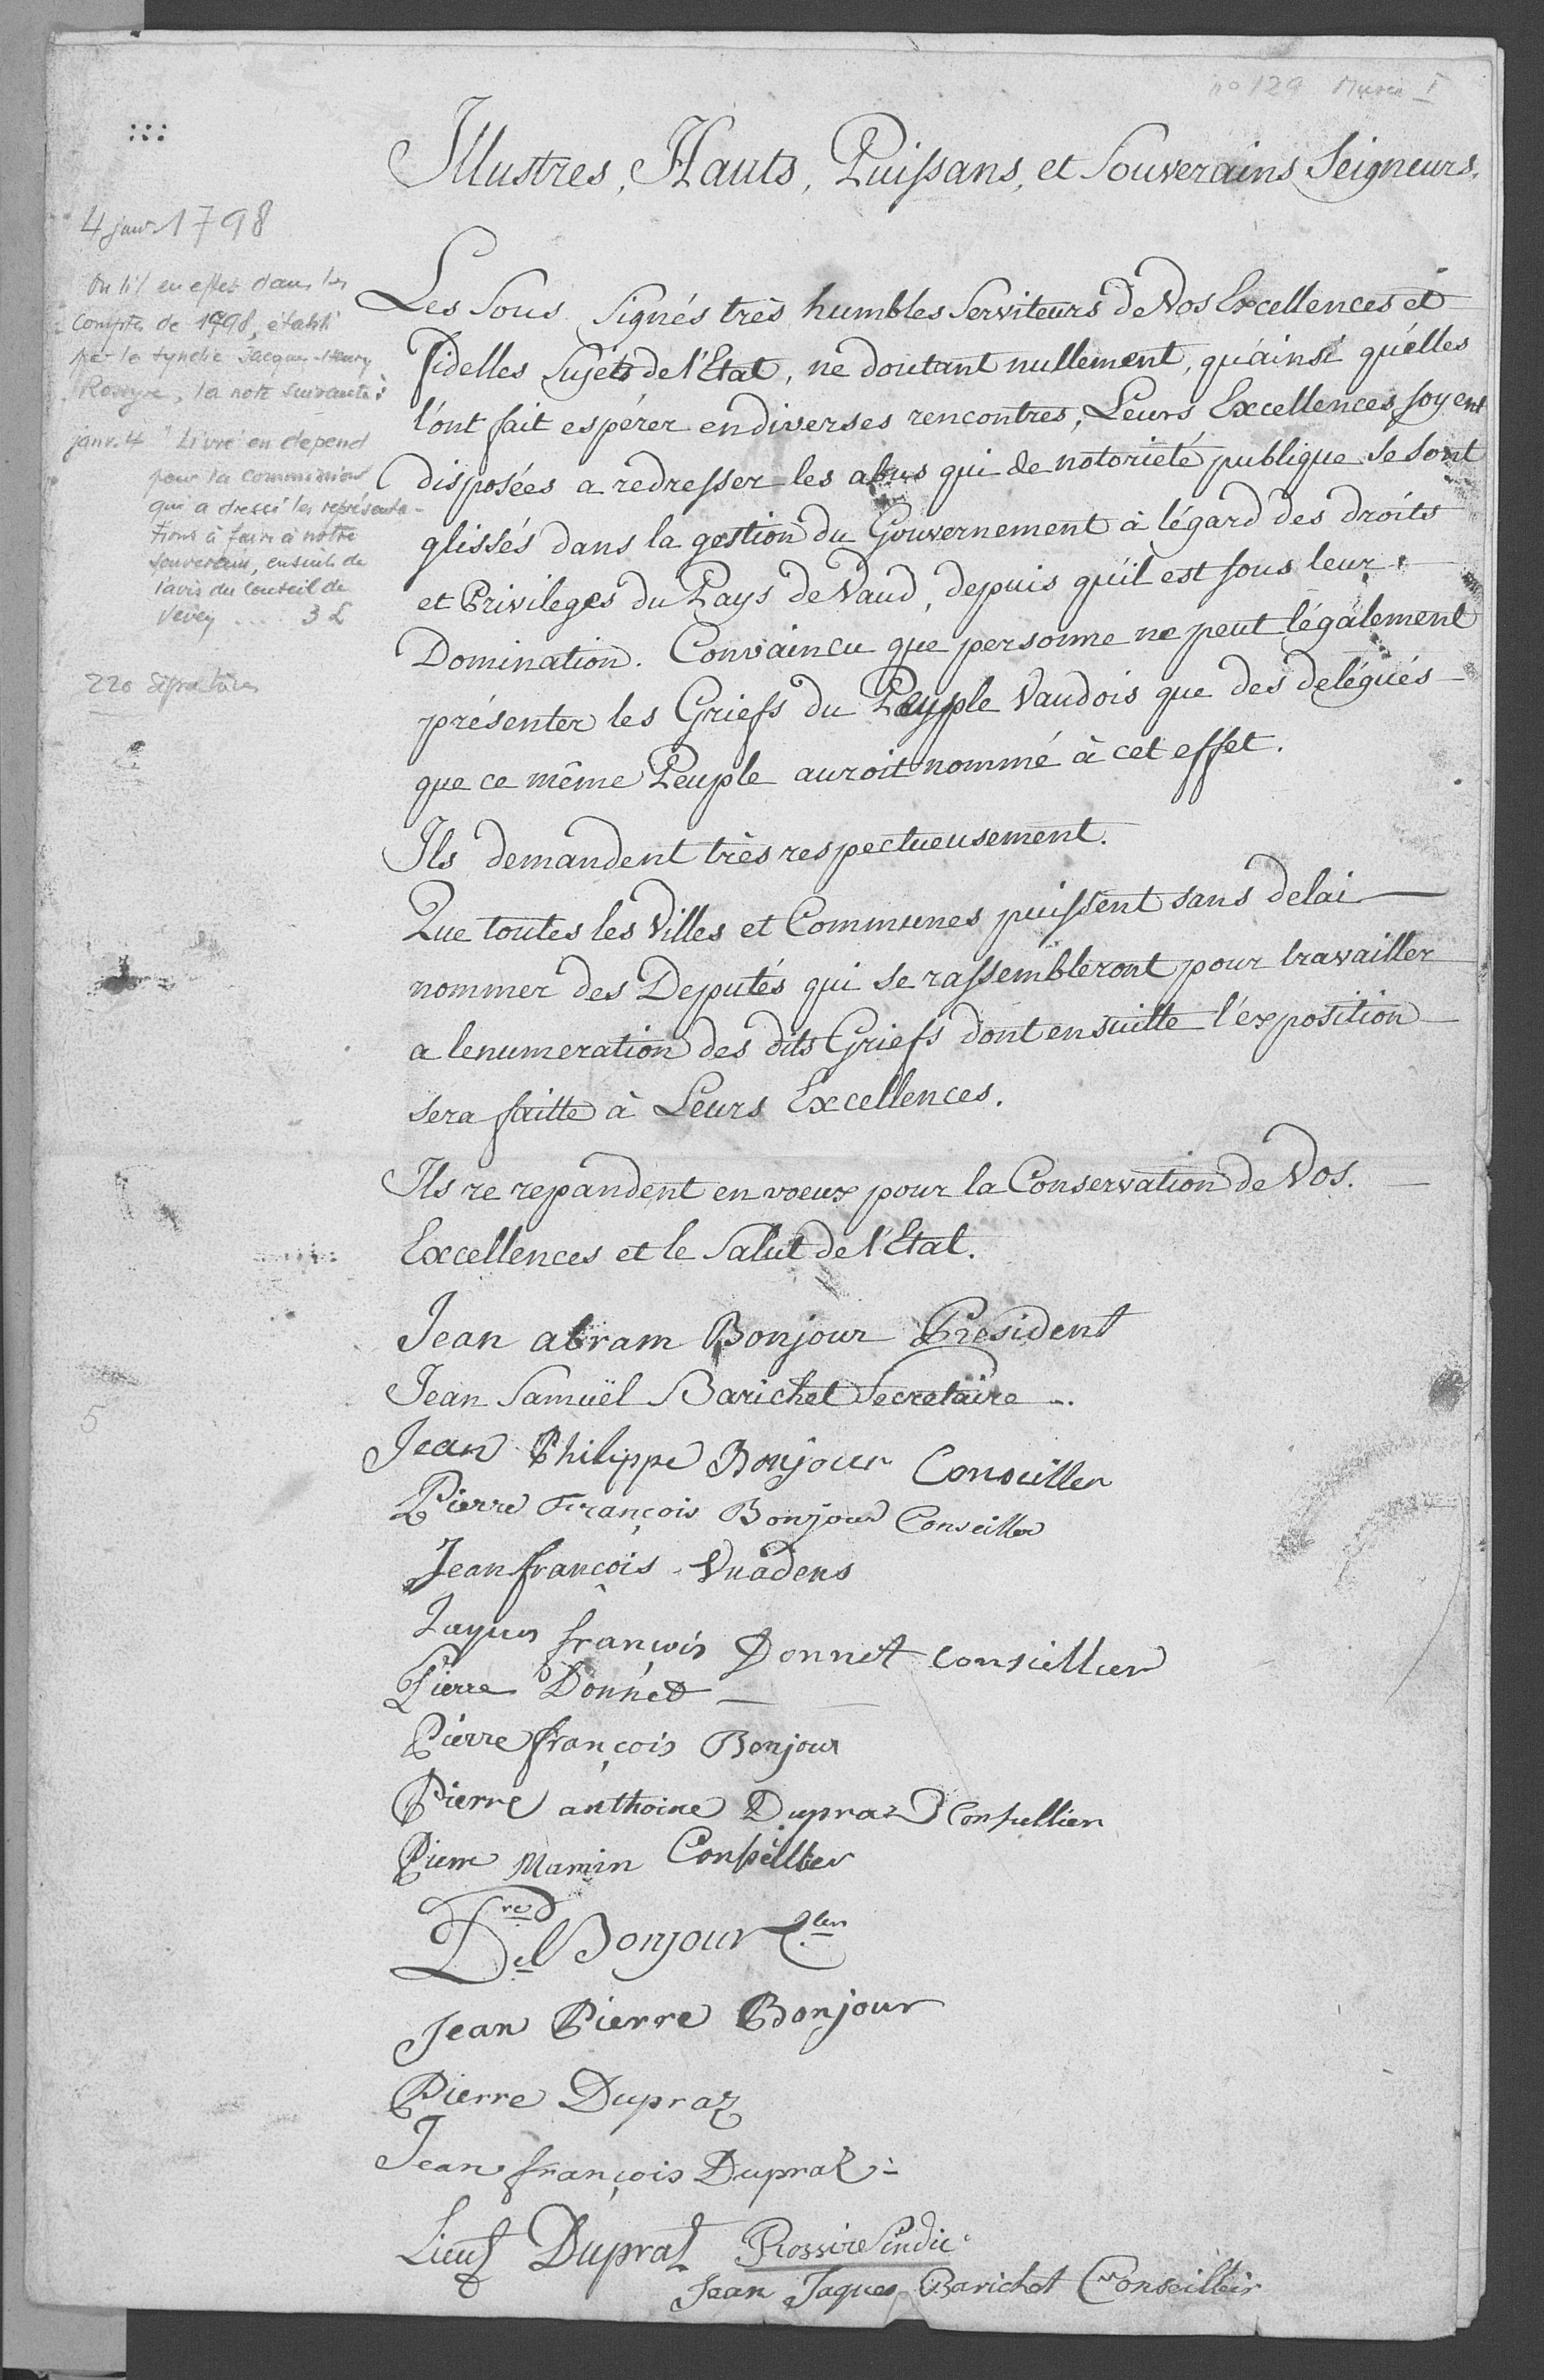 no 129 Musée I
Illustres, Hauts, Puissans, et Souverains Seigneurs.
4 janv. 1798
On lit en effet dans les
comptes de 1798, établi
par le syndic Jacques-Henry
Rossyre, la note suivante :
janv. 4 " Livré en depend
pour la commission
qui a dressé les représenta-
tions à faire à notre
souverain, ensuite de
l'avis du Conseil de
Vevey .... 3 £
220 Signatures
Les Sous Signés très humbles Serviteurs de Vos Excellences et
Fidelles Sujets de l'Etat, ne doutant nullement, qu'ainsi qu'elles
l'ont fait espérer en diverses rencontres, Leurs Excellences soyent
disposées a redresser les abus qui de notorieté publique se sont
glissés dans la gestion du Gouvernement à légard des droits
et Privileges du Pays de Vaud, depuis qu'il est sous leur
Domination. Convaincu que personne ne peut légalement
présenter les Griefs du Peuple Vaudois que des delégués
que ce même Peuple auroit nommé à cet effet.
Ils demandent très respectueusement.
Que toutes les Villes et Communes puissent sans delai
nommer des Deputés qui se rassembleront pour travailler
a lenumeration des dits Griefs dont ensuitte l'exposition
sera faitte à Leurs Excellences.
Ils re repandent en voeux pour la Conservation de Vos.
Excellences et le Salut de l'Etat.
Jean abram Bonjour Président
Jean Samuël Barichet Secretaire
Jean Philippe Bonjour Conseiller
Pierre François Bonjour Conseiller
Jean françois Vuadens
Jaques françois Donnet conseillier
Pierre Donnet
Pierre françois Bonjour
Pierre anthoine Dupraz Conseillier
Pierre Mamin Conseiller
Dl Bonjour
Jean Pierre Bonjour
Pierre Dupraz
Jean françois Dupraz
Lieut Dupraz Rossire Sindic
Jean Jaques Barichet Conseiller
5